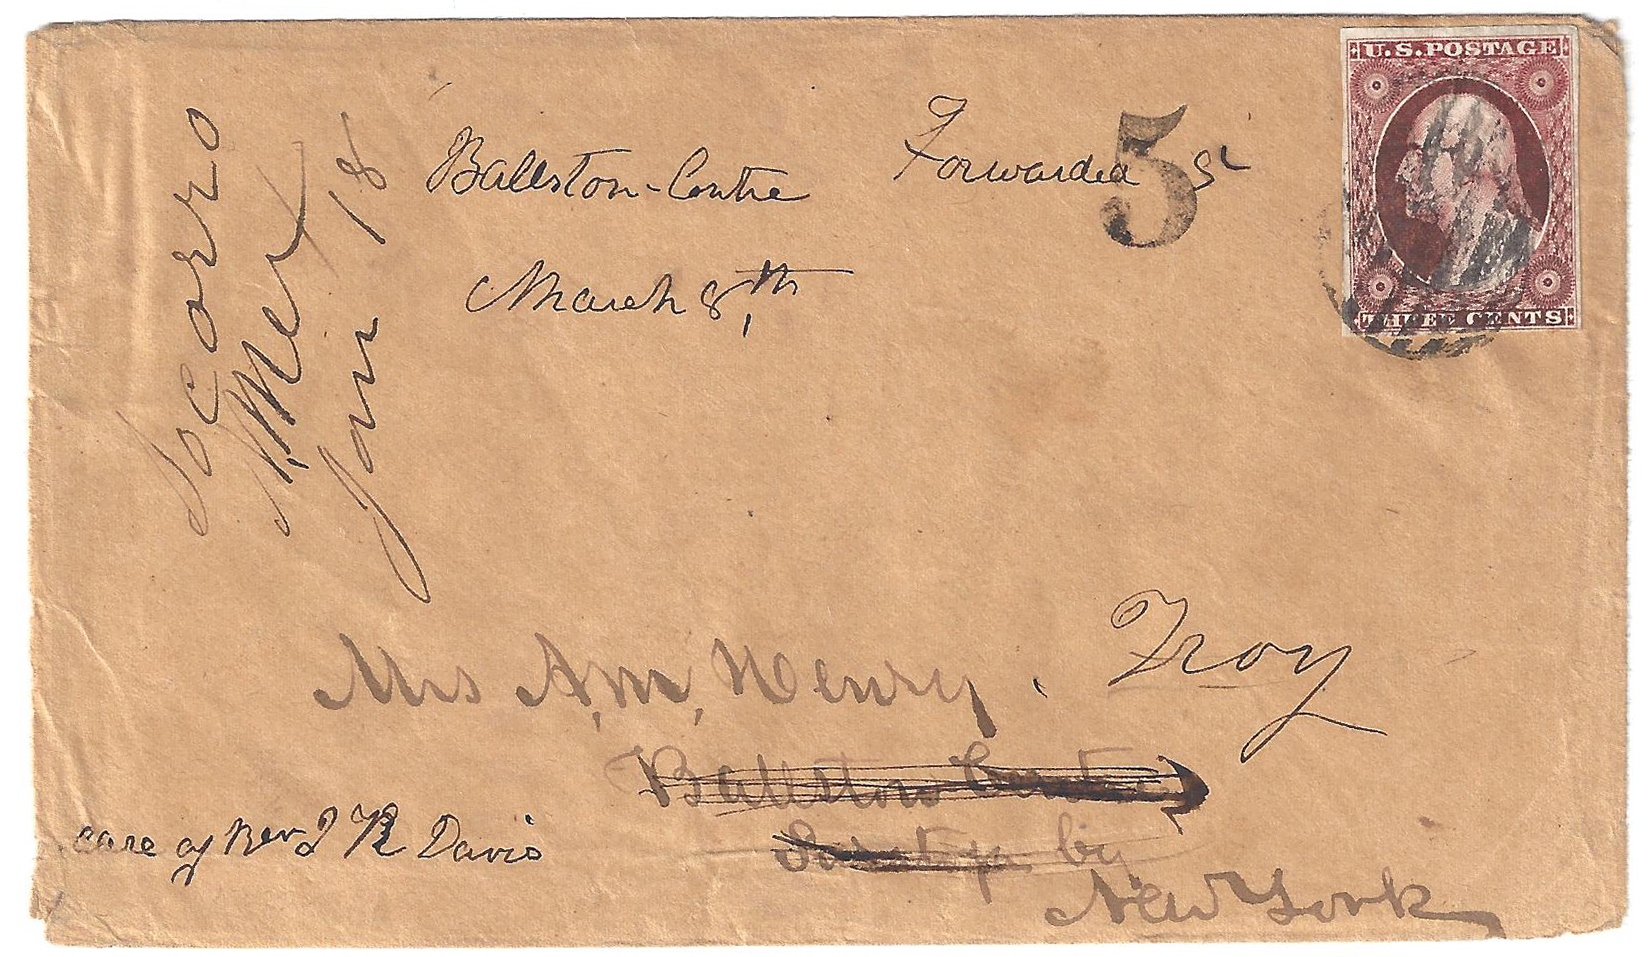 U.S. POSTAGE
THREE CENTS
Socorro
N. Mex
Jan 18
Ballston-Centre
March 8th
Forwarded 5
5
Mrs A, M, Henry.
Troy
Ballston Centre
Saratoga
New York
care of Rev J R Davis